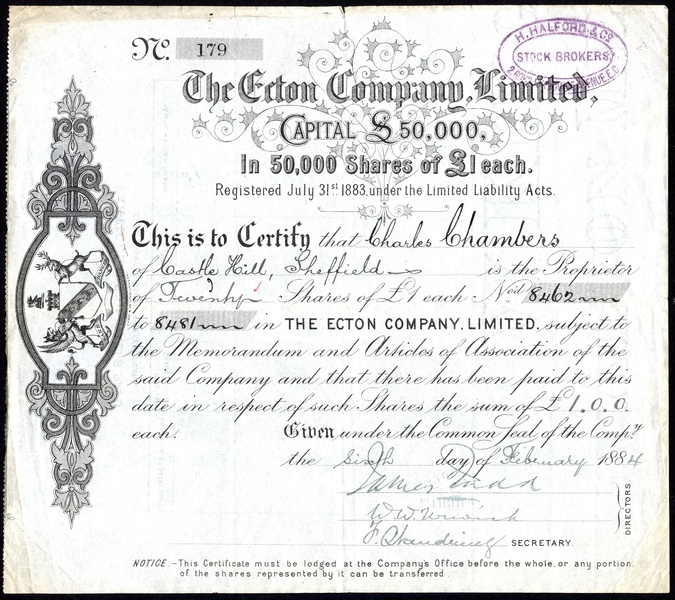 No. 179
H. HALFORD & Co
STOCK BROKERS
The Ecton Company, Limited,
CAPITAL £50,000,
In 50,000 Shares of £1 each.
Registered July 31st 1883, under the Limited Liability Acts.
This is to Certify that Charles Chambers
of Castle Hill, Sheffield is the Proprietor
of Twenty Shares of £1 each Nos 8462
to 8481 in THE ECTON COMPANY, LIMITED, subject to
the Memorandum and Articles of Association of the
said Company and that there has been paid to this
date in respect of such Shares the sum of £1.0.0.
each. Given under the Common Seal of the Compy
the Sixth day of February 1884
James
DIRECTORS
SECRETARY.
NOTICE.-This Certificate must be lodged at the Company's Office before the whole, or any portion,
of the shares represented by it can be transferred.